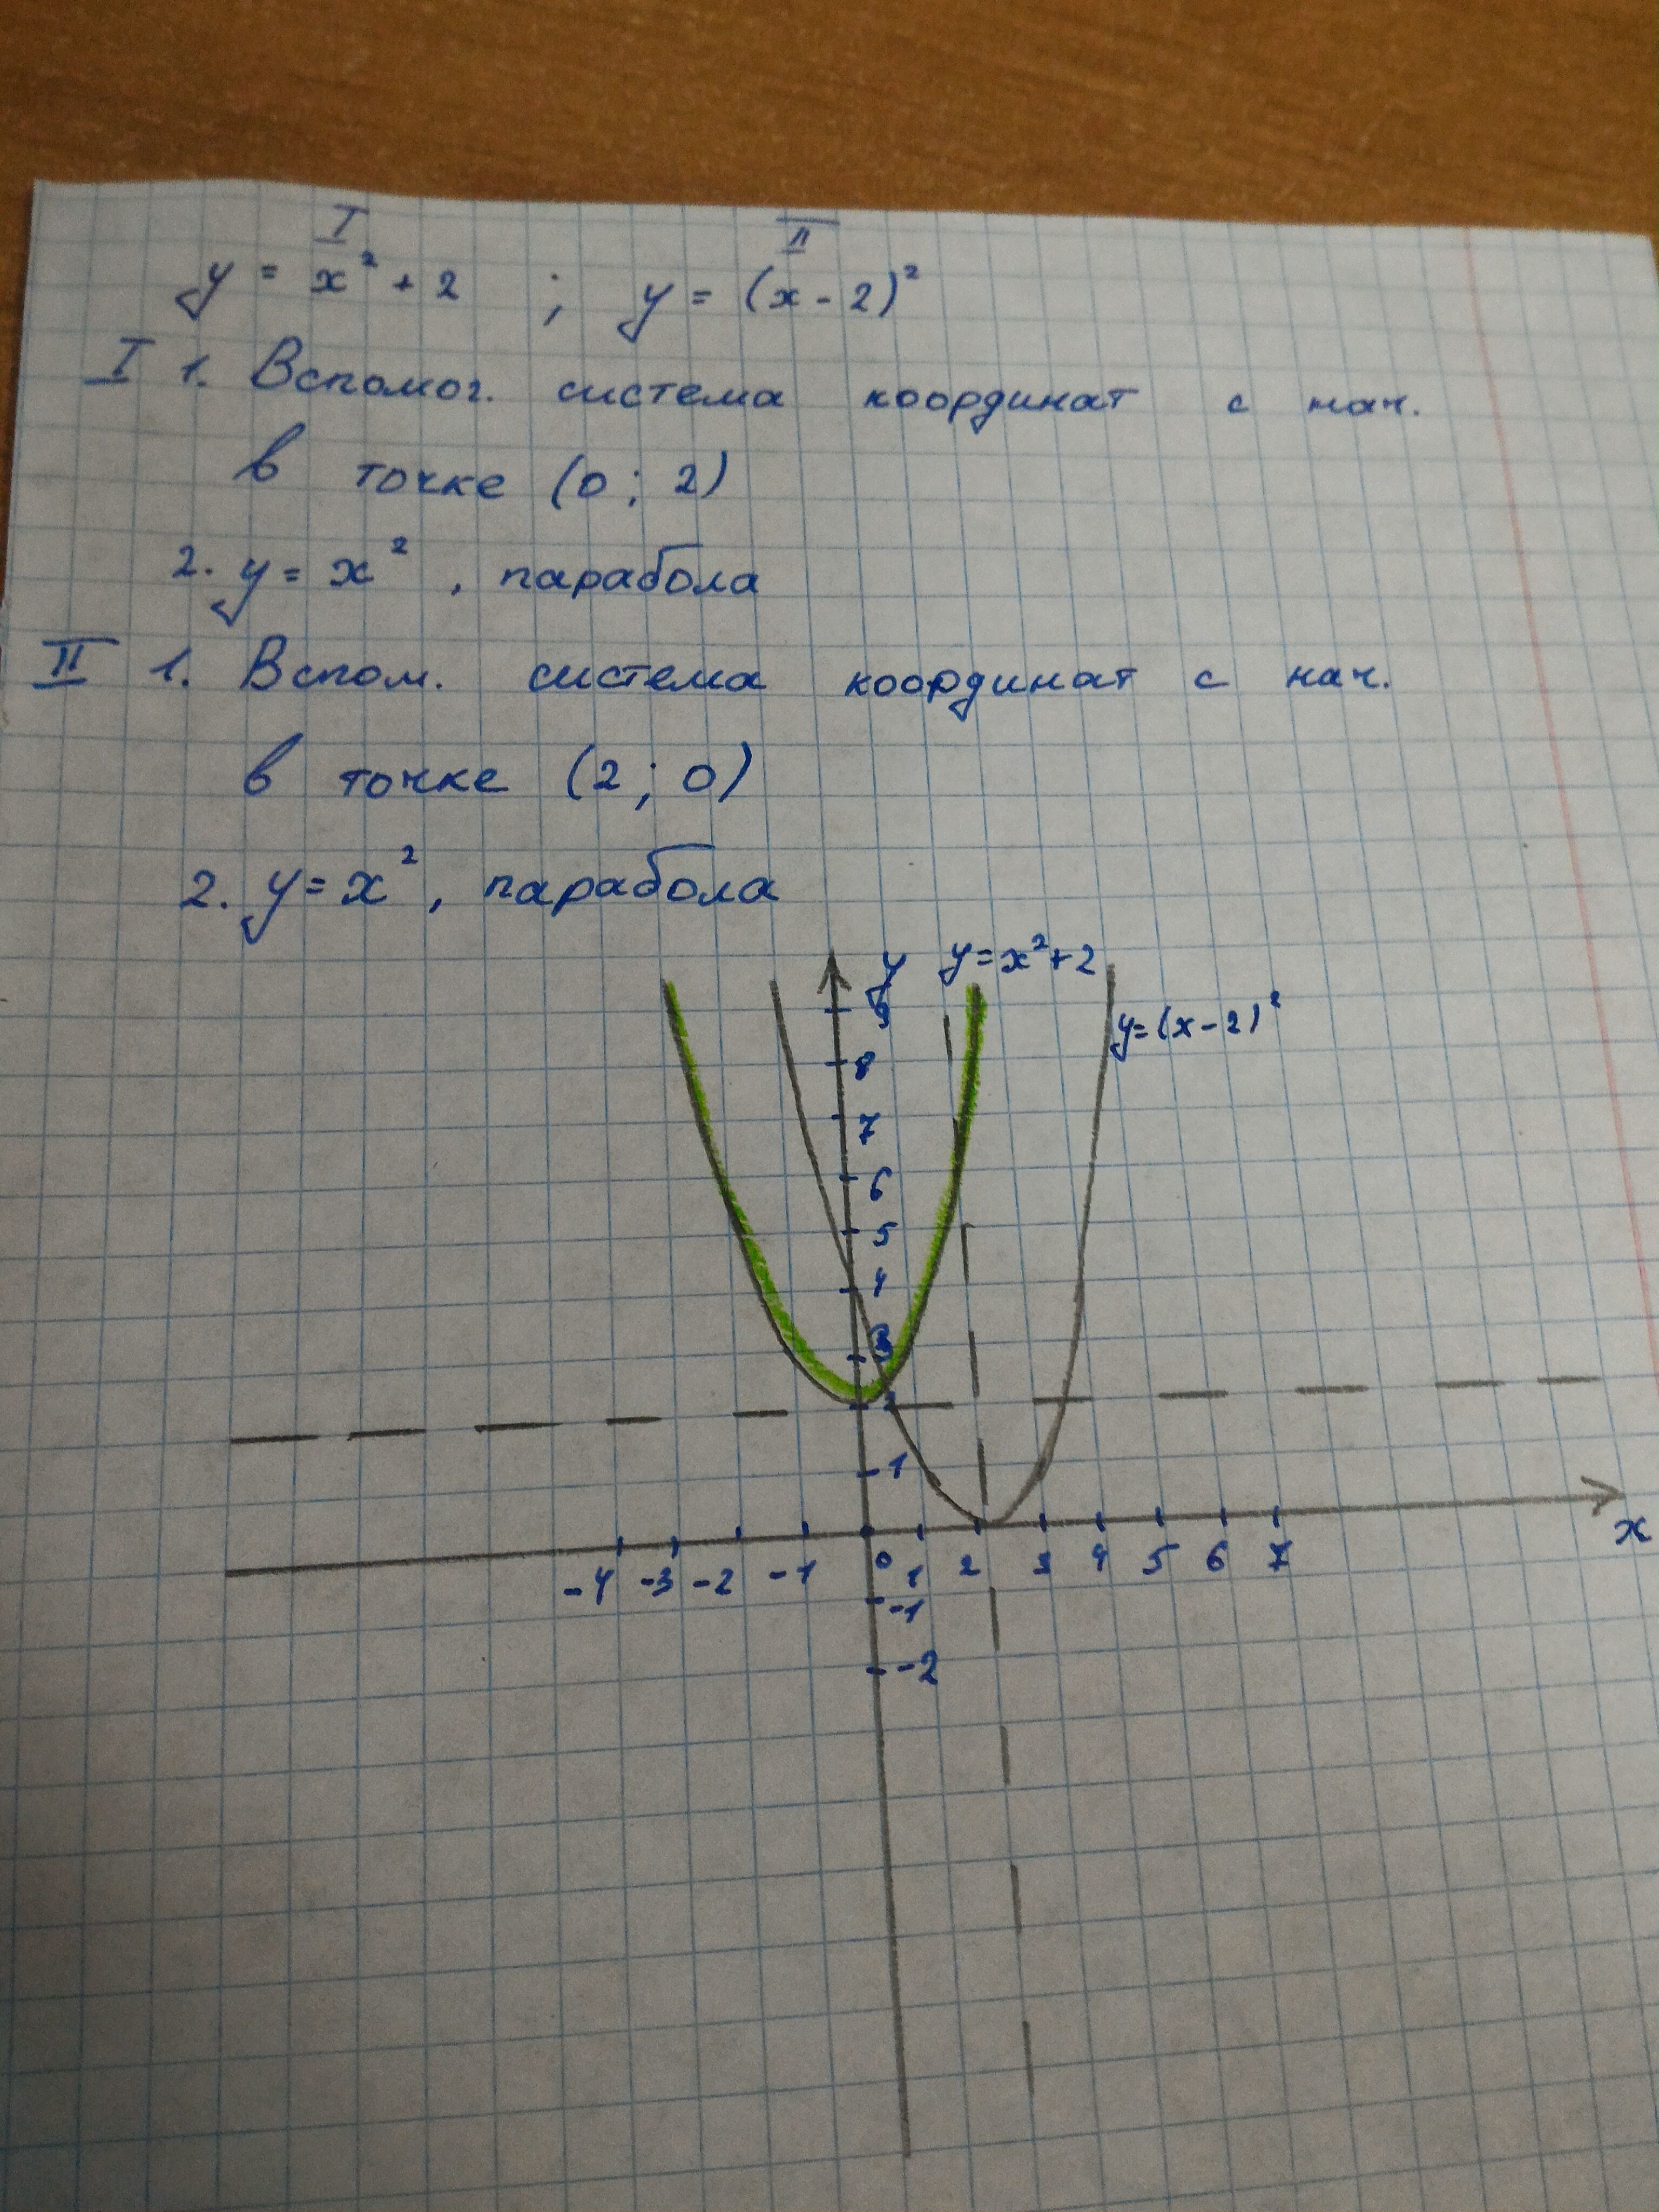 I II
y = x² + 2 ; y = (x - 2)²
I 1. Вспомог. система координат с нач.
в точке (0 ; 2)
2. y = x² , парабола
II 1. Вспом. система координат с нач.
в точке (2 ; 0)
2. y = x² , парабола
y y = x² + 2
9 y = (x - 2)²
8
7
6
5
4
3
2
1
x
-4 -3 -2 -1 0 1 2 3 4 5 6 7
-1
-2